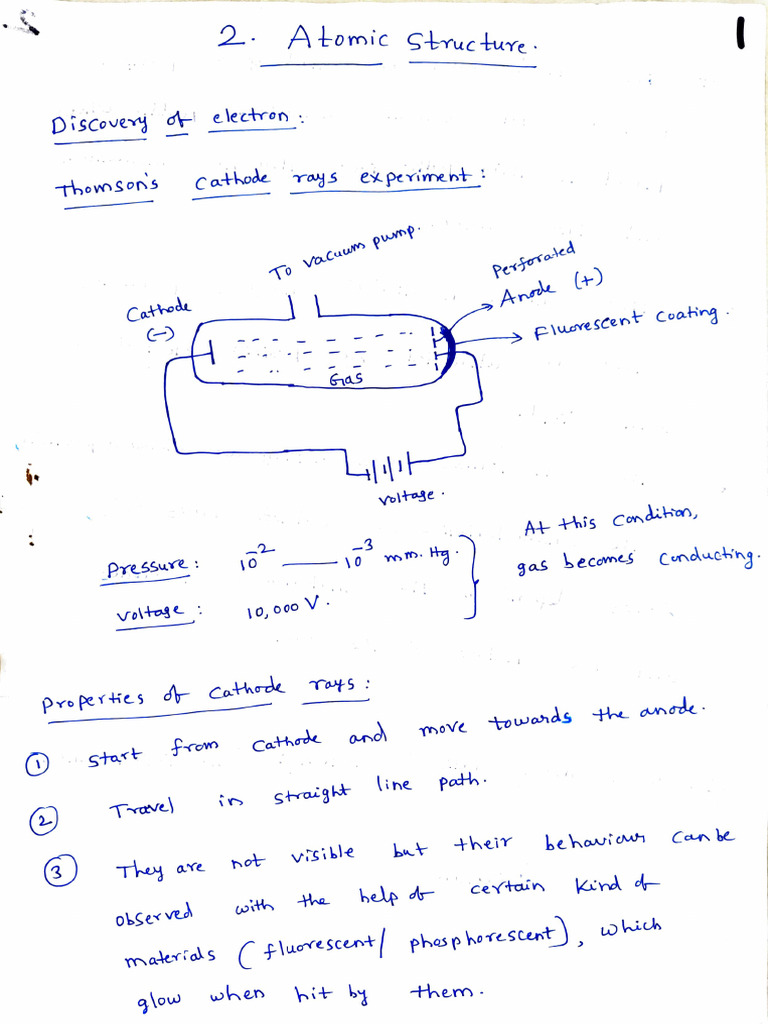 1
2. Atomic structure.
Discovery of electron:
Thomson's cathode rays experiment:
To vacuum pump.
Cathode
(-)
Perforated
Anode (+)
Fluorescent coating.
Gas
voltage.
Pressure: 10⁻² — 10⁻³ mm. Hg.
voltage: 10,000 V.
At this condition,
gas becomes conducting.
Properties of cathode rays:
① start from cathode and move towards the anode.
② Travel in straight line path.
③ They are not visible but their behaviour can be
observed with the help of certain kind of
materials (fluorescent/ phosphorescent), which
glow when hit by them.